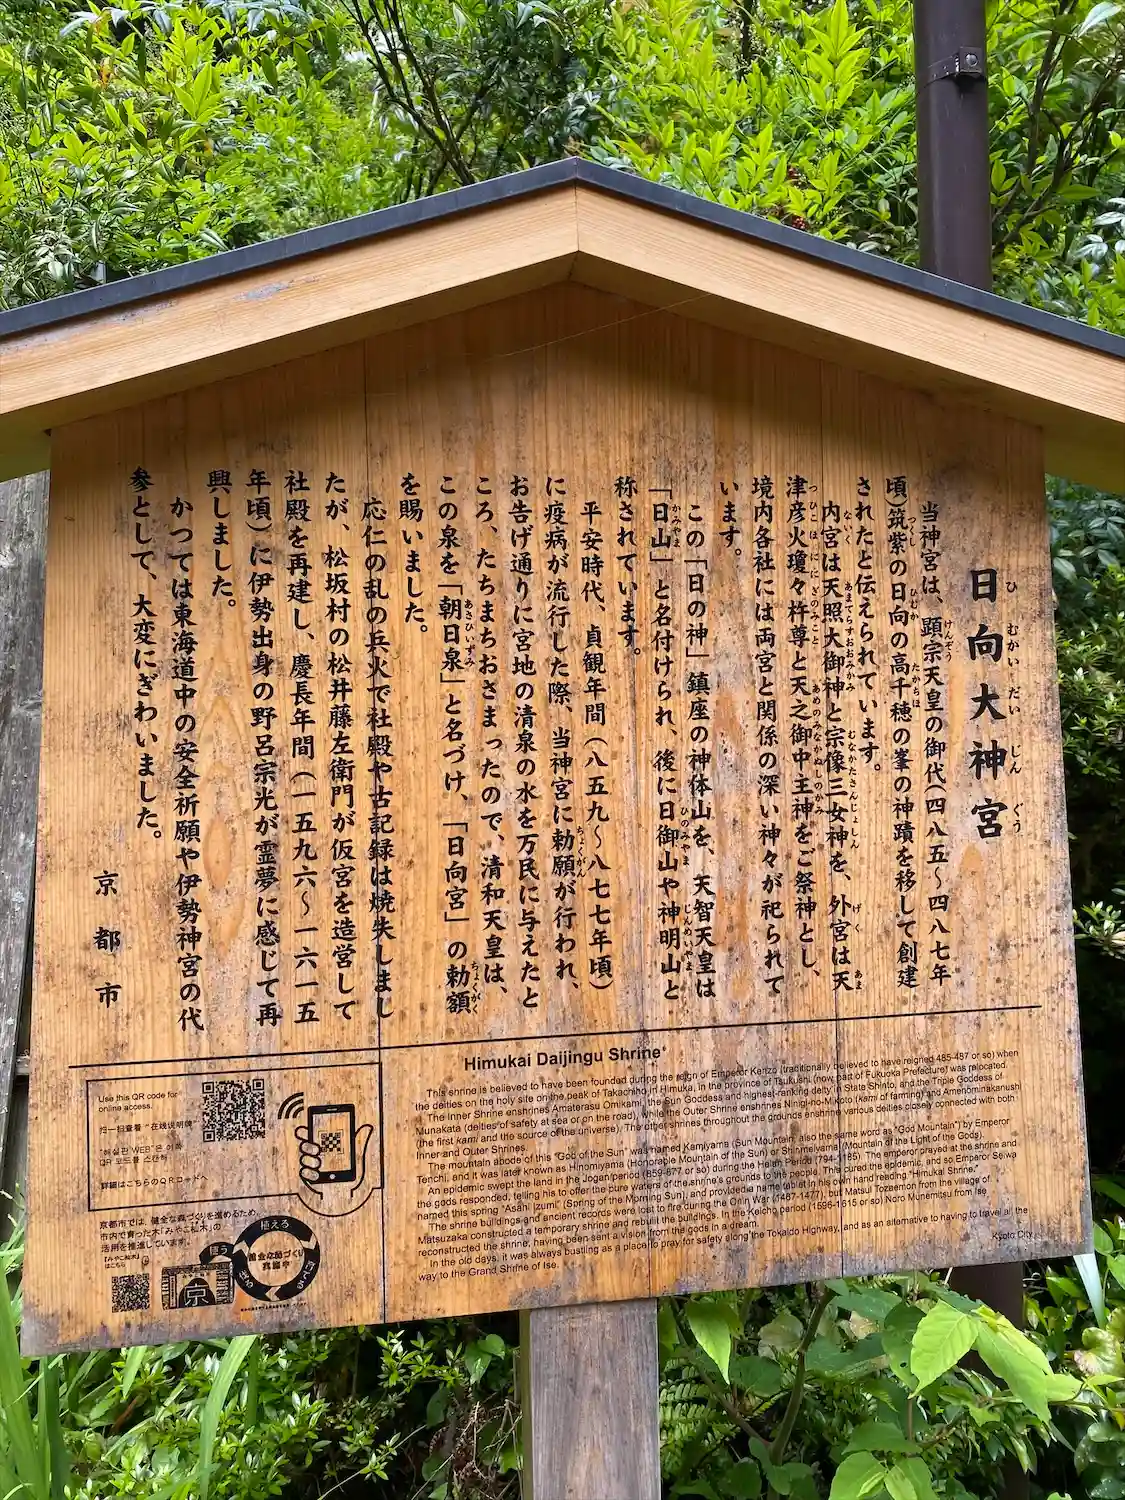 日向大神宮
ひ むかい だい じん ぐう
当神宮は、顕宗天皇の御代(四八五〜四八七年
頃)筑紫の日向の高千穂の峯の神蹟を移して創建
されたと伝えられています。
内宮は天照大御神と宗像三女神を、外宮は天
津彦火瓊々杵尊と天之御中主神をご祭神とし、
境内各社には両宮と関係の深い神々が祀られて
います。
この「日の神」鎮座の神体山を、天智天皇は
「日山」と名付けられ、後に日御山や神明山と
称されています。
平安時代、貞観年間(八五九〜八七七年頃)
に疫病が流行した際、当神宮に勅願が行われ、
お告げ通りに宮地の清泉の水を万民に与えたと
ころ、たちまちおさまったので、清和天皇は、
この泉を「朝日泉」と名づけ、「日向宮」の勅額
を賜いました。
応仁の乱の兵火で社殿や古記録は焼失しまし
たが、松坂村の松井藤左衛門が仮宮を造営して
社殿を再建し、慶長年間(一五九六〜一六一五
年頃)に伊勢出身の野呂宗光が霊夢に感じて再
興しました。
かつては東海道中の安全祈願や伊勢神宮の代
参として、大変にぎわいました。
京都市
Himukai Daijingu Shrine
This shrine is believed to have been founded during the reign of Emperor Kenzo (traditionally believed to have reigned 485-487 or so) when
the deities on the holy site on the peak of Takachiho in Himuka, in the province of Tsukushi (now part of Fukuoka Prefecture) was relocated.
The Inner Shrine enshrines Amaterasu Omikami, the Sun Goddess and highest-ranking deity in State Shinto, and the Triple Goddess of
Munakata (deities of safety at sea or on the road), while the Outer Shrine enshrines Ninigi-no-Mikoto (kami of farming) and Amenominakanushi
(the first kami and the source of the universe). The other shrines throughout the grounds enshrine various deities closely connected with both
Inner and Outer Shrines.
The mountain abode of this "God of the Sun" was named Kamiyama (Sun Mountain; also the same word as "God Mountain") by Emperor
Tenchi, and it was later known as Hinomiyama (Honorable Mountain of the Sun) or Shinmeiyama (Mountain of the Light of the Gods).
An epidemic swept the land in the Jogan period (859-877 or so) during the Heian Period (794-1185). The emperor prayed at the shrine and
the gods responded, telling his to offer the pure waters of the shrine's grounds to the people. This cured the epidemic, and so Emperor Seiwa
named this spring "Asahi Izumi" (Spring of the Morning Sun), and provided a name tablet in his own hand reading, "Himukai Shrine."
The shrine buildings and ancient records were lost to fire during the Onin War (1467-1477), but Matsui Tozaemon from the village of
Matsuzaka constructed a temporary shrine and rebuilt the buildings. In the Keicho period (1596-1615 or so) Noro Munemitsu from Ise
reconstructed the shrine, having been sent a vision from the gods in a dream.
In the old days, it was always bustling as a place to pray for safety along the Tokaido Highway, and as an alternative to having to travel all the
way to the Grand Shrine of Ise.
Kyoto City
Use this QR code for
online access.
扫一扫查看"在线说明牌"
"해설판 WEB"은 이쪽
QR 코드를 스캔하
詳細はこちらのQRコードへ
京都市では、健全な森づくりを進めるため、
市内で育った木「みやこ杣木」の
活用を推進しています。
「みやこ杣木」
はこちら
植える
健全な森づくり
真最中
京